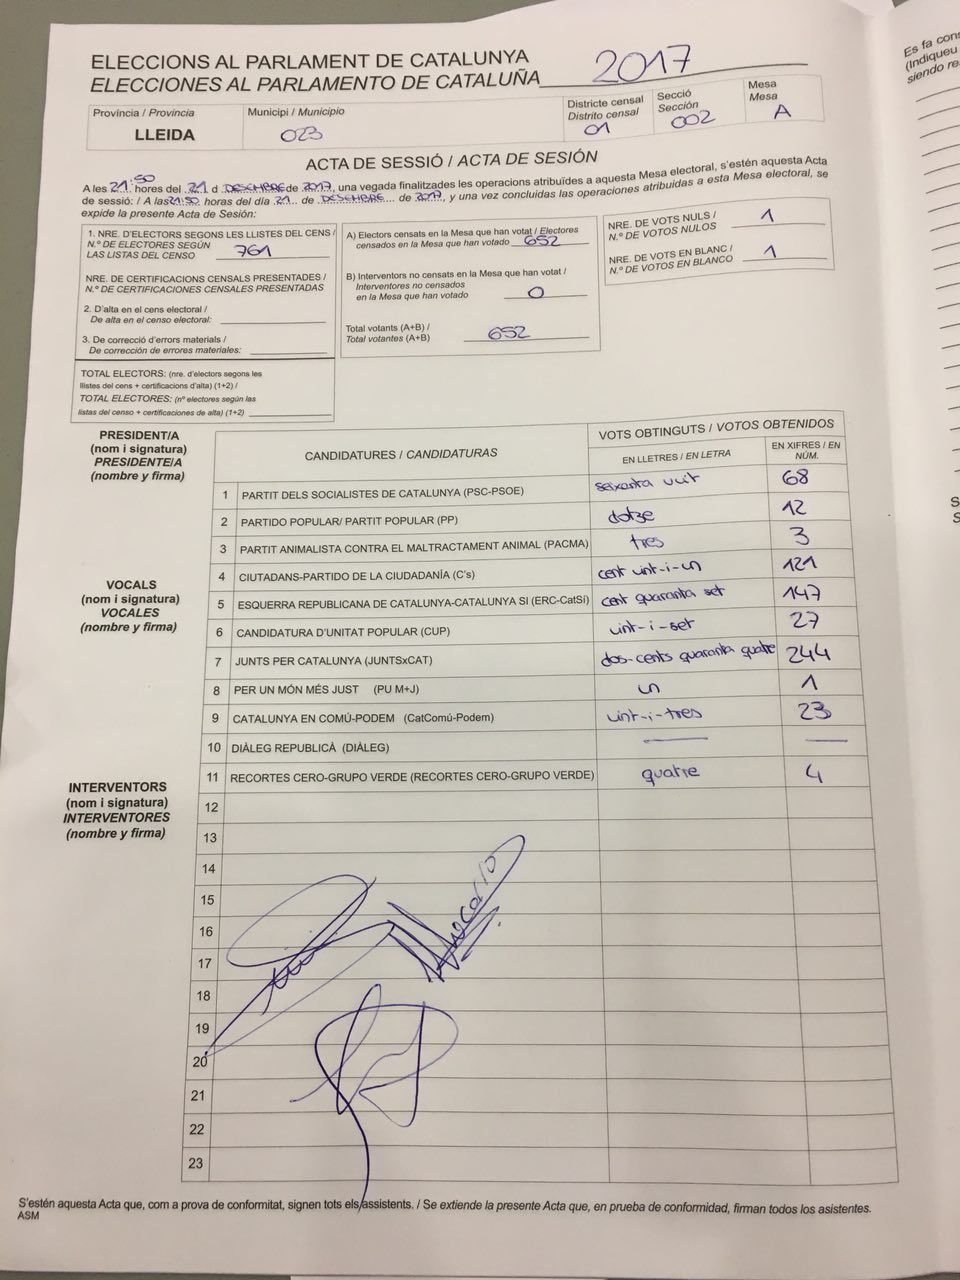 ELECCIONS AL PARLAMENT DE CATALUNYA
ELECCIONES AL PARLAMENTO DE CATALUÑA 2017
Província / Provincia
LLEIDA
Municipi / Municipio
023
Districte censal
Distrito censal
01
Secció
Sección
002
Mesa
Mesa
A
ACTA DE SESSIÓ / ACTA DE SESIÓN
A les 21:50 hores del 21 d DESEMBRE de 2017, una vegada finalitzades les operacions atribuïdes a aquesta Mesa electoral, s'estén aquesta Acta
de sessió: / A las 21:50 horas del día 21 de DESEMBRE de 2017, y una vez concluidas las operaciones atribuidas a esta Mesa electoral, se
expide la presente Acta de Sesión:
1. NRE. D'ELECTORS SEGONS LES LLISTES DEL CENS /
N.º DE ELECTORES SEGÚN
LAS LISTAS DEL CENSO 761
NRE. DE CERTIFICACIONS CENSALS PRESENTADES /
N.º DE CERTIFICACIONES CENSALES PRESENTADAS
2. D'alta en el cens electoral /
De alta en el censo electoral:
3. De correcció d'errors materials /
De corrección de errores materiales:
TOTAL ELECTORS: (nre. d'electors segons les
llistes del cens + certificacions d'alta) (1+2) /
TOTAL ELECTORES: (nº electores según las
listas del censo + certificaciones de alta) (1+2)
A) Electors censats en la Mesa que han votat / Electores
censados en la Mesa que han votado 652
B) Interventors no censats en la Mesa que han votat /
Interventores no censados
en la Mesa que han votado 0
Total votants (A+B) /
Total votantes (A+B) 652
NRE. DE VOTS NULS /
N.º DE VOTOS NULOS 1
NRE. DE VOTS EN BLANC /
N.º DE VOTOS EN BLANCO 1
PRESIDENT/A
(nom i signatura)
PRESIDENTE/A
(nombre y firma)
VOCALS
(nom i signatura)
VOCALES
(nombre y firma)
INTERVENTORS
(nom i signatura)
INTERVENTORES
(nombre y firma)
CANDIDATURES / CANDIDATURAS
VOTS OBTINGUTS / VOTOS OBTENIDOS
EN LLETRES / EN LETRA
EN XIFRES / EN
NÚM.
1 PARTIT DELS SOCIALISTES DE CATALUNYA (PSC-PSOE) seixanta vuit 68
2 PARTIDO POPULAR/ PARTIT POPULAR (PP) dotze 12
3 PARTIT ANIMALISTA CONTRA EL MALTRACTAMENT ANIMAL (PACMA) tres 3
4 CIUTADANS-PARTIDO DE LA CIUDADANÍA (C's) cent vint-i-un 121
5 ESQUERRA REPUBLICANA DE CATALUNYA-CATALUNYA SI (ERC-CatSí) cent quaranta set 147
6 CANDIDATURA D'UNITAT POPULAR (CUP) vint-i-set 27
7 JUNTS PER CATALUNYA (JUNTSxCAT) dos-cents quaranta quatre 244
8 PER UN MÓN MÉS JUST (PU M+J) un 1
9 CATALUNYA EN COMÚ-PODEM (CatComú-Podem) vint-i-tres 23
10 DIÀLEG REPUBLICÀ (DIÀLEG)
11 RECORTES CERO-GRUPO VERDE (RECORTES CERO-GRUPO VERDE) quatre 4
12
13
14
15
16
17
18
19
20
21
22
23
S'estén aquesta Acta que, com a prova de conformitat, signen tots els assistents. / Se extiende la presente Acta que, en prueba de conformidad, firman todos los asistentes.
ASM
Es fa cons
(Indiqueu
siendo re